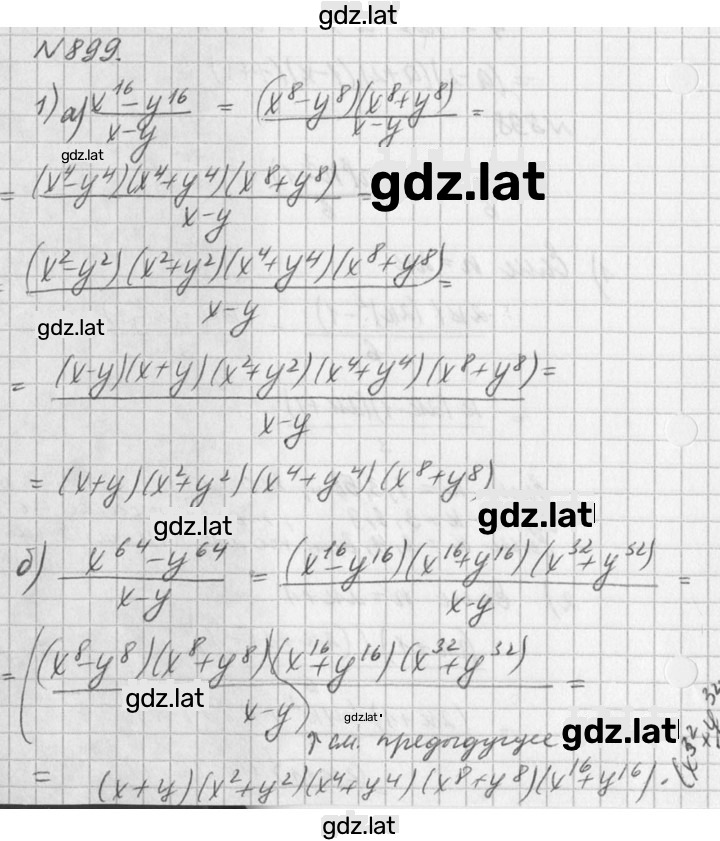 gdz.lat
N899.
1) а) (x^16 - y^16)/(x-y) = ((x^8-y^8)(x^8+y^8))/(x-y) =
gdz.lat
gdz.lat
= ((x^4-y^4)(x^4+y^4)(x^8+y^8))/(x-y) =
= ((x^2-y^2)(x^2+y^2)(x^4+y^4)(x^8+y^8))/(x-y) =
gdz.lat
= ((x-y)(x+y)(x^2+y^2)(x^4+y^4)(x^8+y^8))/(x-y) =
= (x+y)(x^2+y^2)(x^4+y^4)(x^8+y^8)
gdz.lat
gdz.lat
б) (x^64-y^64)/(x-y) = ((x^16-y^16)(x^16+y^16)(x^32+y^32))/(x-y) =
= ((x^8-y^8)(x^8+y^8)(x^16+y^16)(x^32+y^32))/(x-y) =
gdz.lat
gdz.lat
↑ см. предыдущее
gdz.lat
= (x+y)(x^2+y^2)(x^4+y^4)(x^8+y^8)(x^16+y^16)·(x^32+y^32
gdz.lat